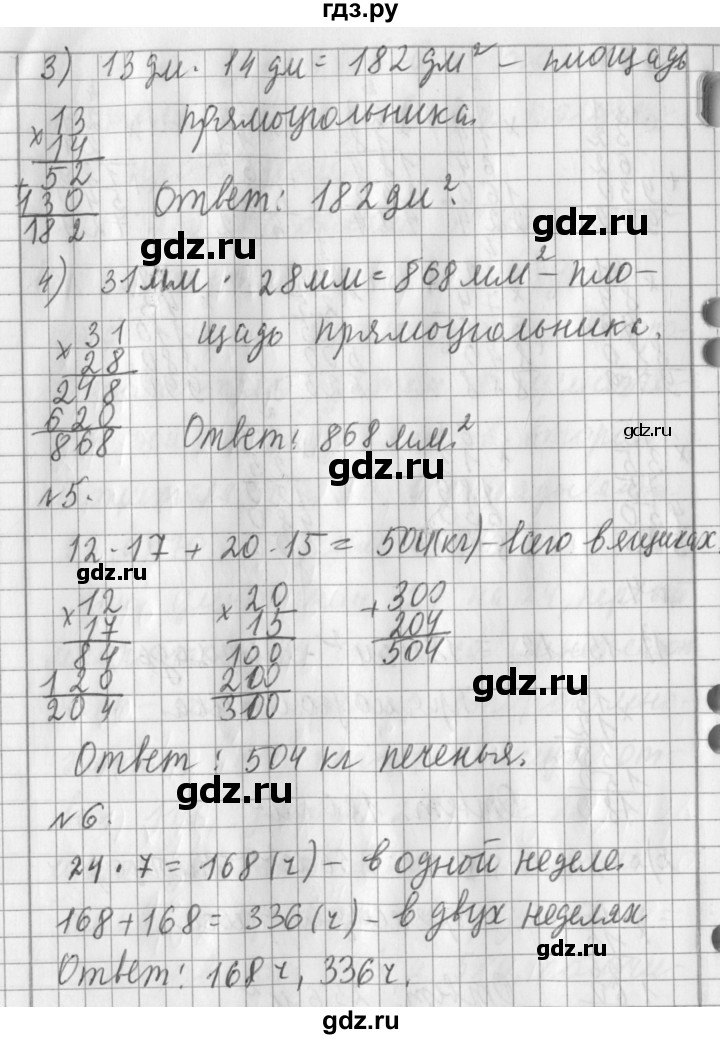 гдз.ру
3) 13 дм · 14 дм = 182 дм² – площадь
прямоугольника.
× 13
14
+ 52
130
182
Ответ: 182 дм².
gdz.ru
gdz.ru
4) 31 мм · 28 мм = 868 мм² – пло–
щадь прямоугольника.
× 31
28
248
620
868
Ответ: 868 мм².
gdz.ru
gdz.ru
№5.
12 · 17 + 20 · 15 = 504 (кг) – всего в ящиках.
gdz.ru
× 12
17
84
120
204
× 20
15
100
200
300
+ 300
204
504
gdz.ru
Ответ: 504 кг печенья.
gdz.ru
№6.
24 · 7 = 168 (ч) – в одной неделе.
168 + 168 = 336 (ч) – в двух неделях
gdz.ru
Ответ: 168 ч, 336 ч.
gdz.ru